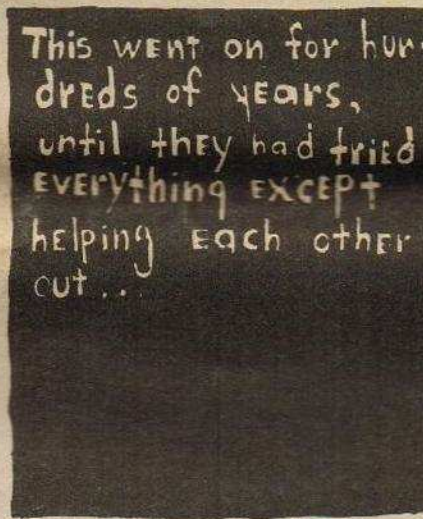 This WENT on for hur-
drEds of yEars,
until thEy had triEd
EVErything EXCEPt
hElping Each othEr
out...